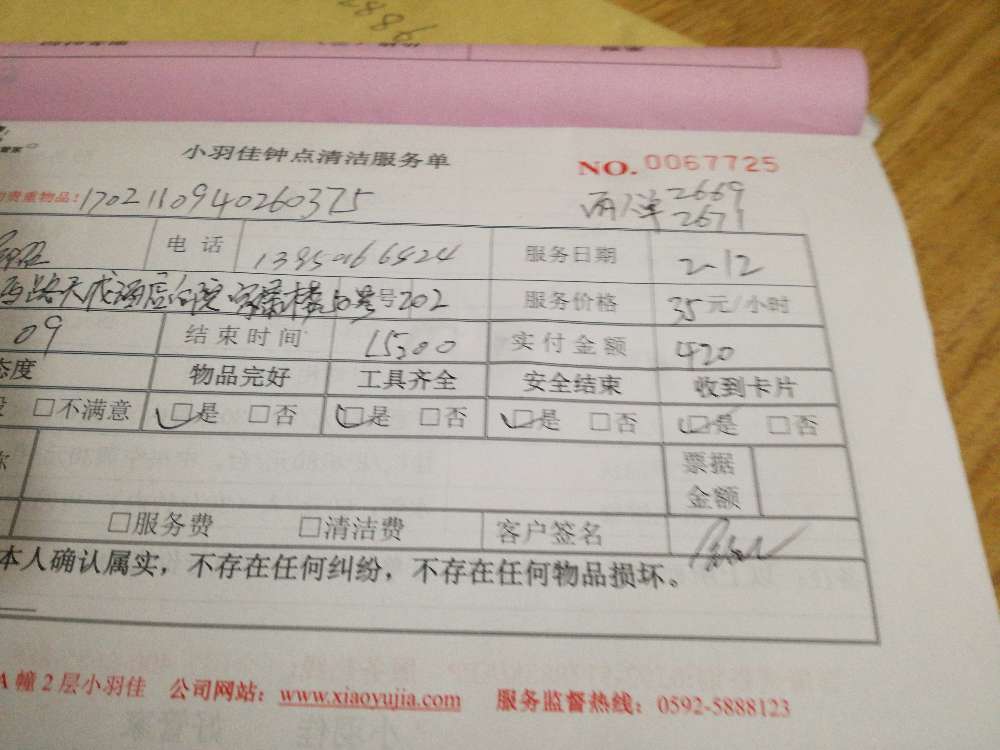 2886
小羽佳钟点清洁服务单 NO. 0067725
贵重物品! 1702110940260375 两人单 2669
2671
电话 13850166524 服务日期 2-12
路天成酒店后院 号202 服务价格 35元/小时
09 结束时间 15:00 实付金额 420
态度 物品完好 工具齐全 安全结束 收到卡片
□不满意 □是 □否 □是 □否 □是 □否 □是 □否
票据
金额
□服务费 □清洁费 客户签名
本人确认属实，不存在任何纠纷，不存在任何物品损坏。
A幢2层小羽佳 公司网站：www.xiaoyujia.com 服务监督热线：0592-5888123